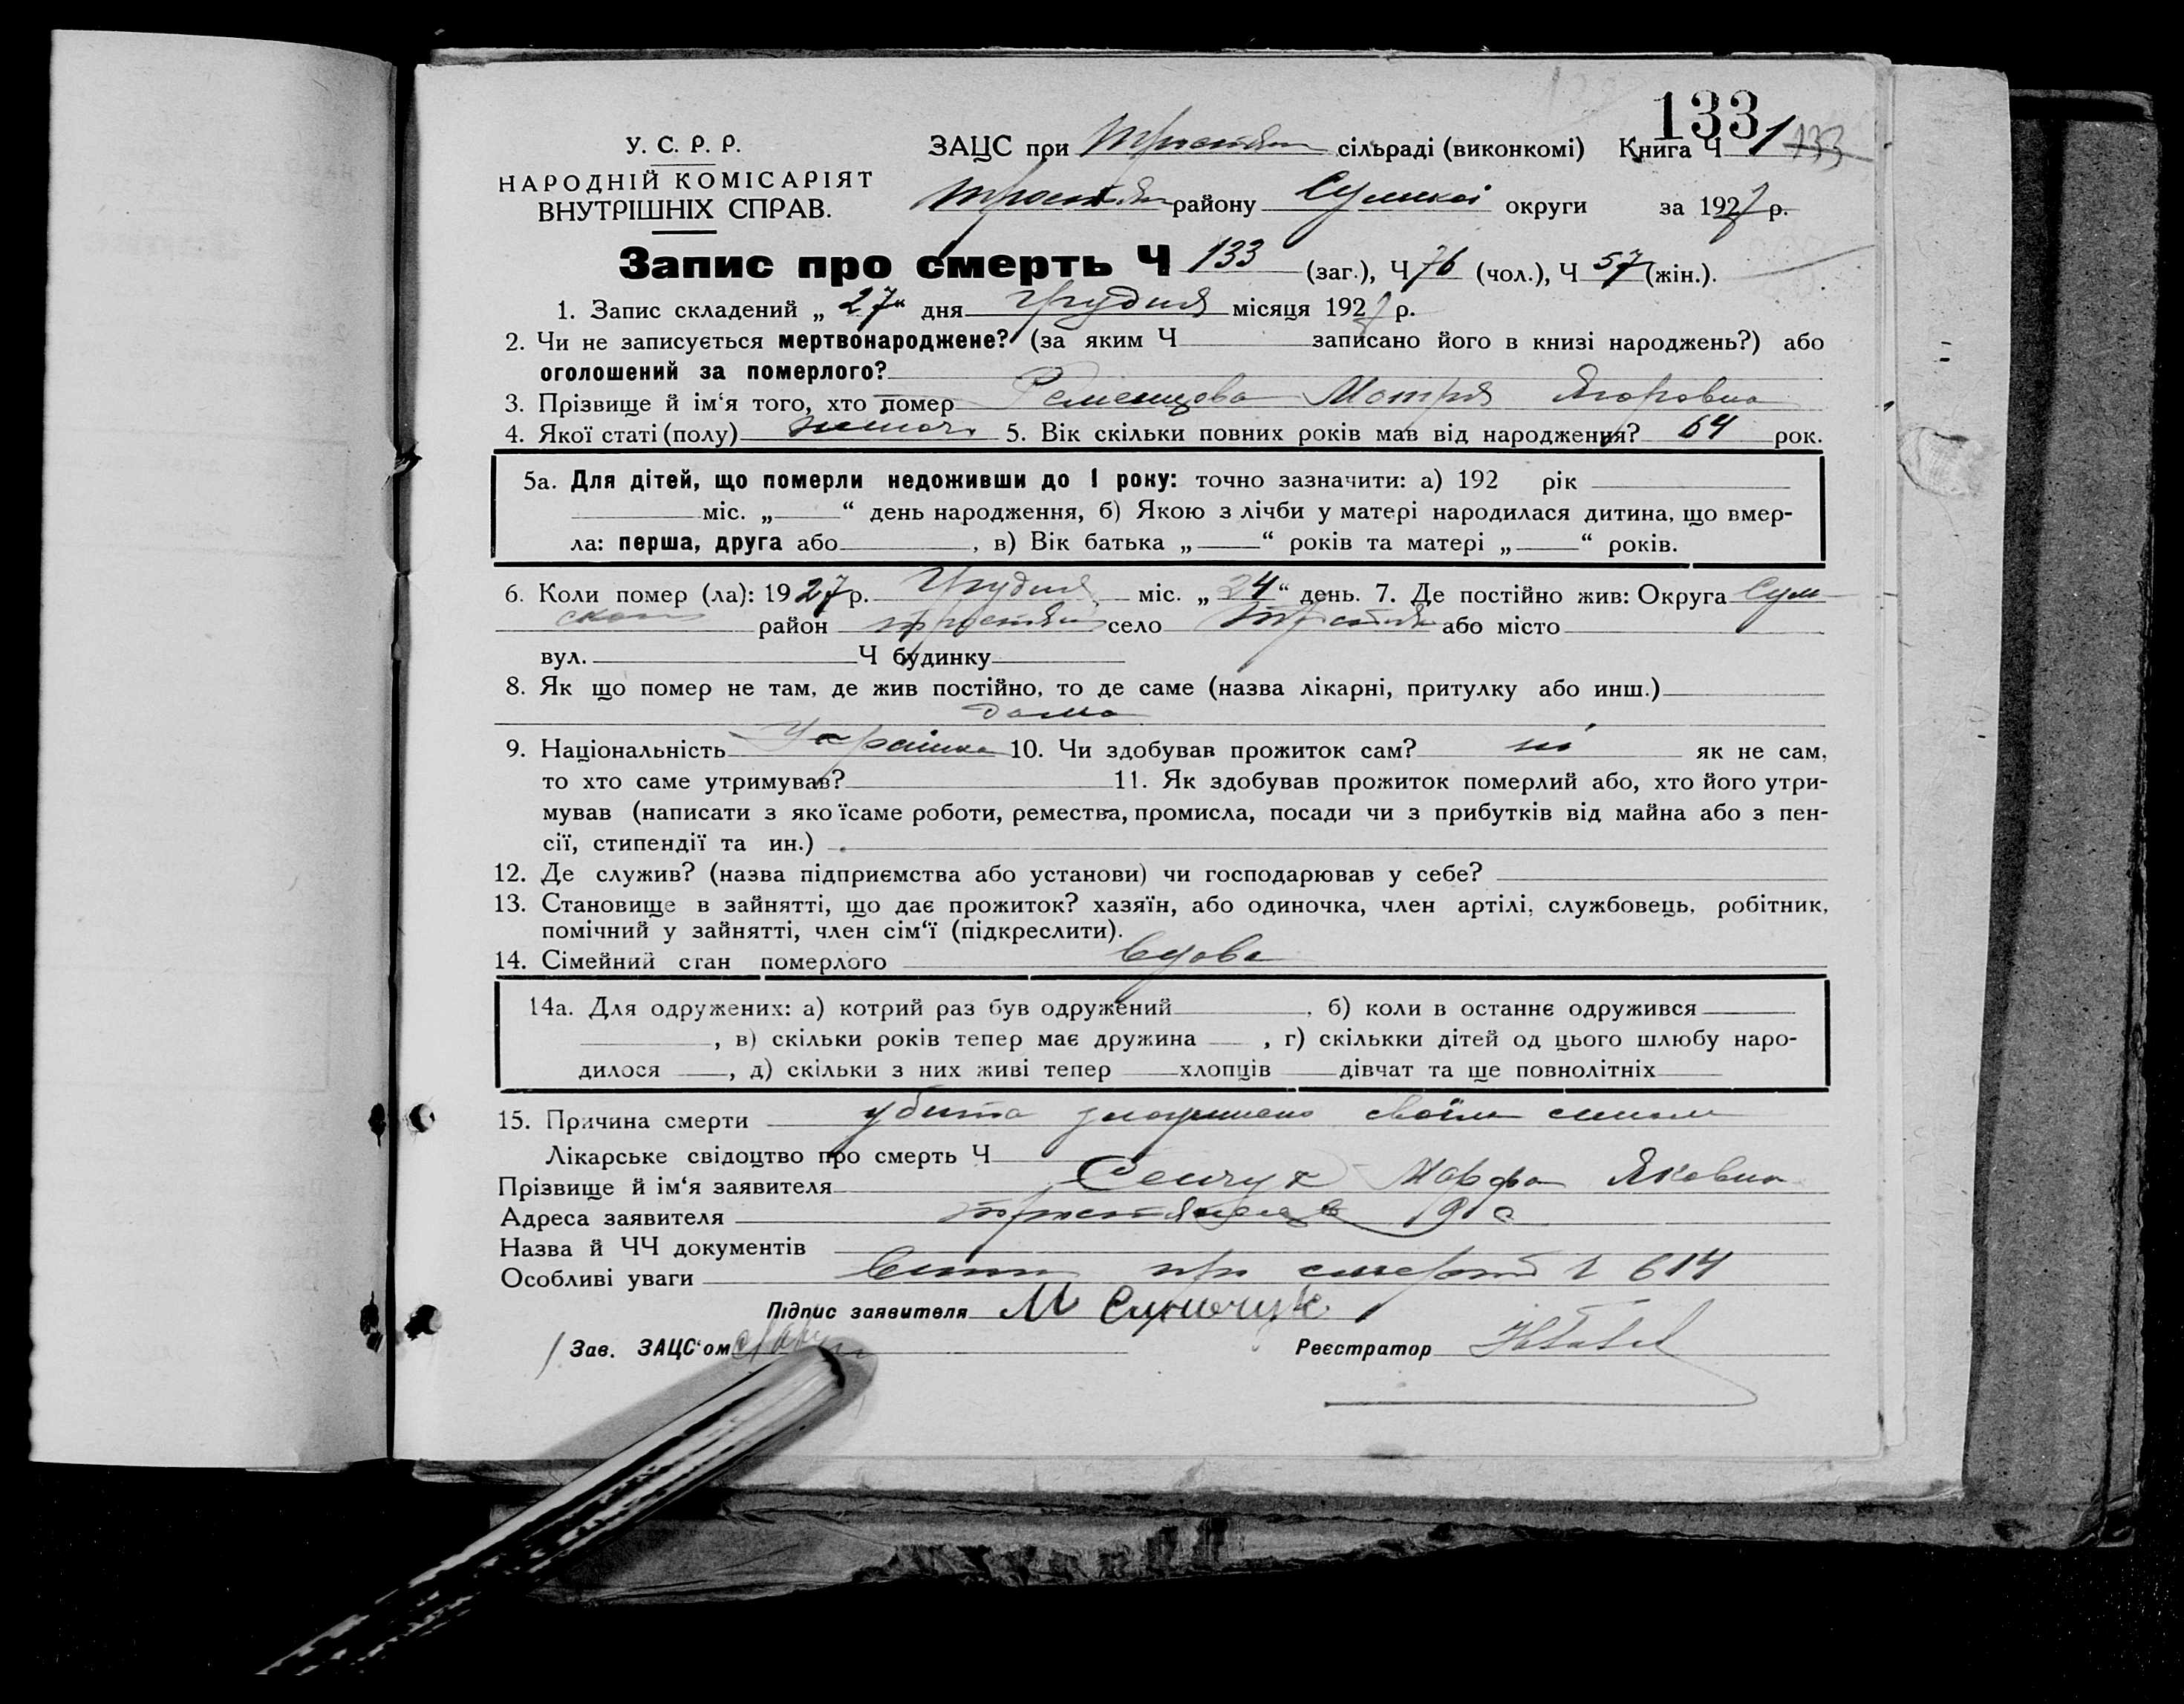 133
У. С. Р. Р.
НАРОДНІЙ КОМІСАРІЯТ
ВНУТРІШНІХ СПРАВ.
ЗАЦС при Тростян сільраді (виконкомі) Книга Ч 1 133
Тростян району Сумської округи за 1927 р.
Запис про смерть Ч 133 (заг.), Ч 76 (чол.), Ч 57 (жін.).
1. Запис складений „ 27 “ дня Грудня місяця 1927 р.
2. Чи не записується мертвонароджене? (за яким Ч записано його в книзі народжень?) або
оголошений за померлого?
3. Прізвище й ім‘я того, хто помер Мотря Ягоровна
4. Якої статі (полу) 5. Вік скільки повних років мав від народження? 64 рок.
5а. Для дітей, що померли недоживши до 1 року: точно зазначити: а) 192 рік
міс. „ “ день народження, б) Якою з лічби у матері народилася дитина, що вмер-
ла: перша, друга або , в) Вік батька „ “ років та матері „ “ років.
6. Коли помер (ла): 1927 р. Грудня міс. „ 24 “ день. 7. Де постійно жив: Округа Сум
район Тростян село Тростян або місто
вул. Ч будинку
8. Як що помер не там, де жив постійно, то де саме (назва лікарні, притулку або инш.)
дома
9. Національність Украінка 10. Чи здобував прожиток сам? ні як не сам,
то хто саме утримував? 11. Як здобував прожиток померлий або, хто його утри-
мував (написати з яко їсаме роботи, ремества, промисла, посади чи з прибутків від майна або з пен-
сії, стипендії та ин.)
12. Де служив? (назва підприємства або установи) чи господарював у себе?
13. Становище в зайнятті, що дає прожиток? хазяїн, або одиночка, член артілі, службовець, робітник,
помічний у зайнятті, член сім‘ї (підкреслити).
14. Сімейний стан померлого вдова
14а. Для одружених: а) котрий раз був одружений , б) коли в останнє одружився
, в) скільки років тепер має дружина , г) скількки дітей од цього шлюбу наро-
дилося , д) скільки з них живі тепер хлопців дівчат та ще повнолітніх
15. Причина смерти убита своїм сином
Лікарське свідоцтво про смерть Ч
Прізвище й ім‘я заявителя Марфа Яковна
Адреса заявителя
Назва й ЧЧ документів
Особливі уваги про смерть Ч 614
Підпис заявителя М
Зав. ЗАЦС‘ом
Реєстратор